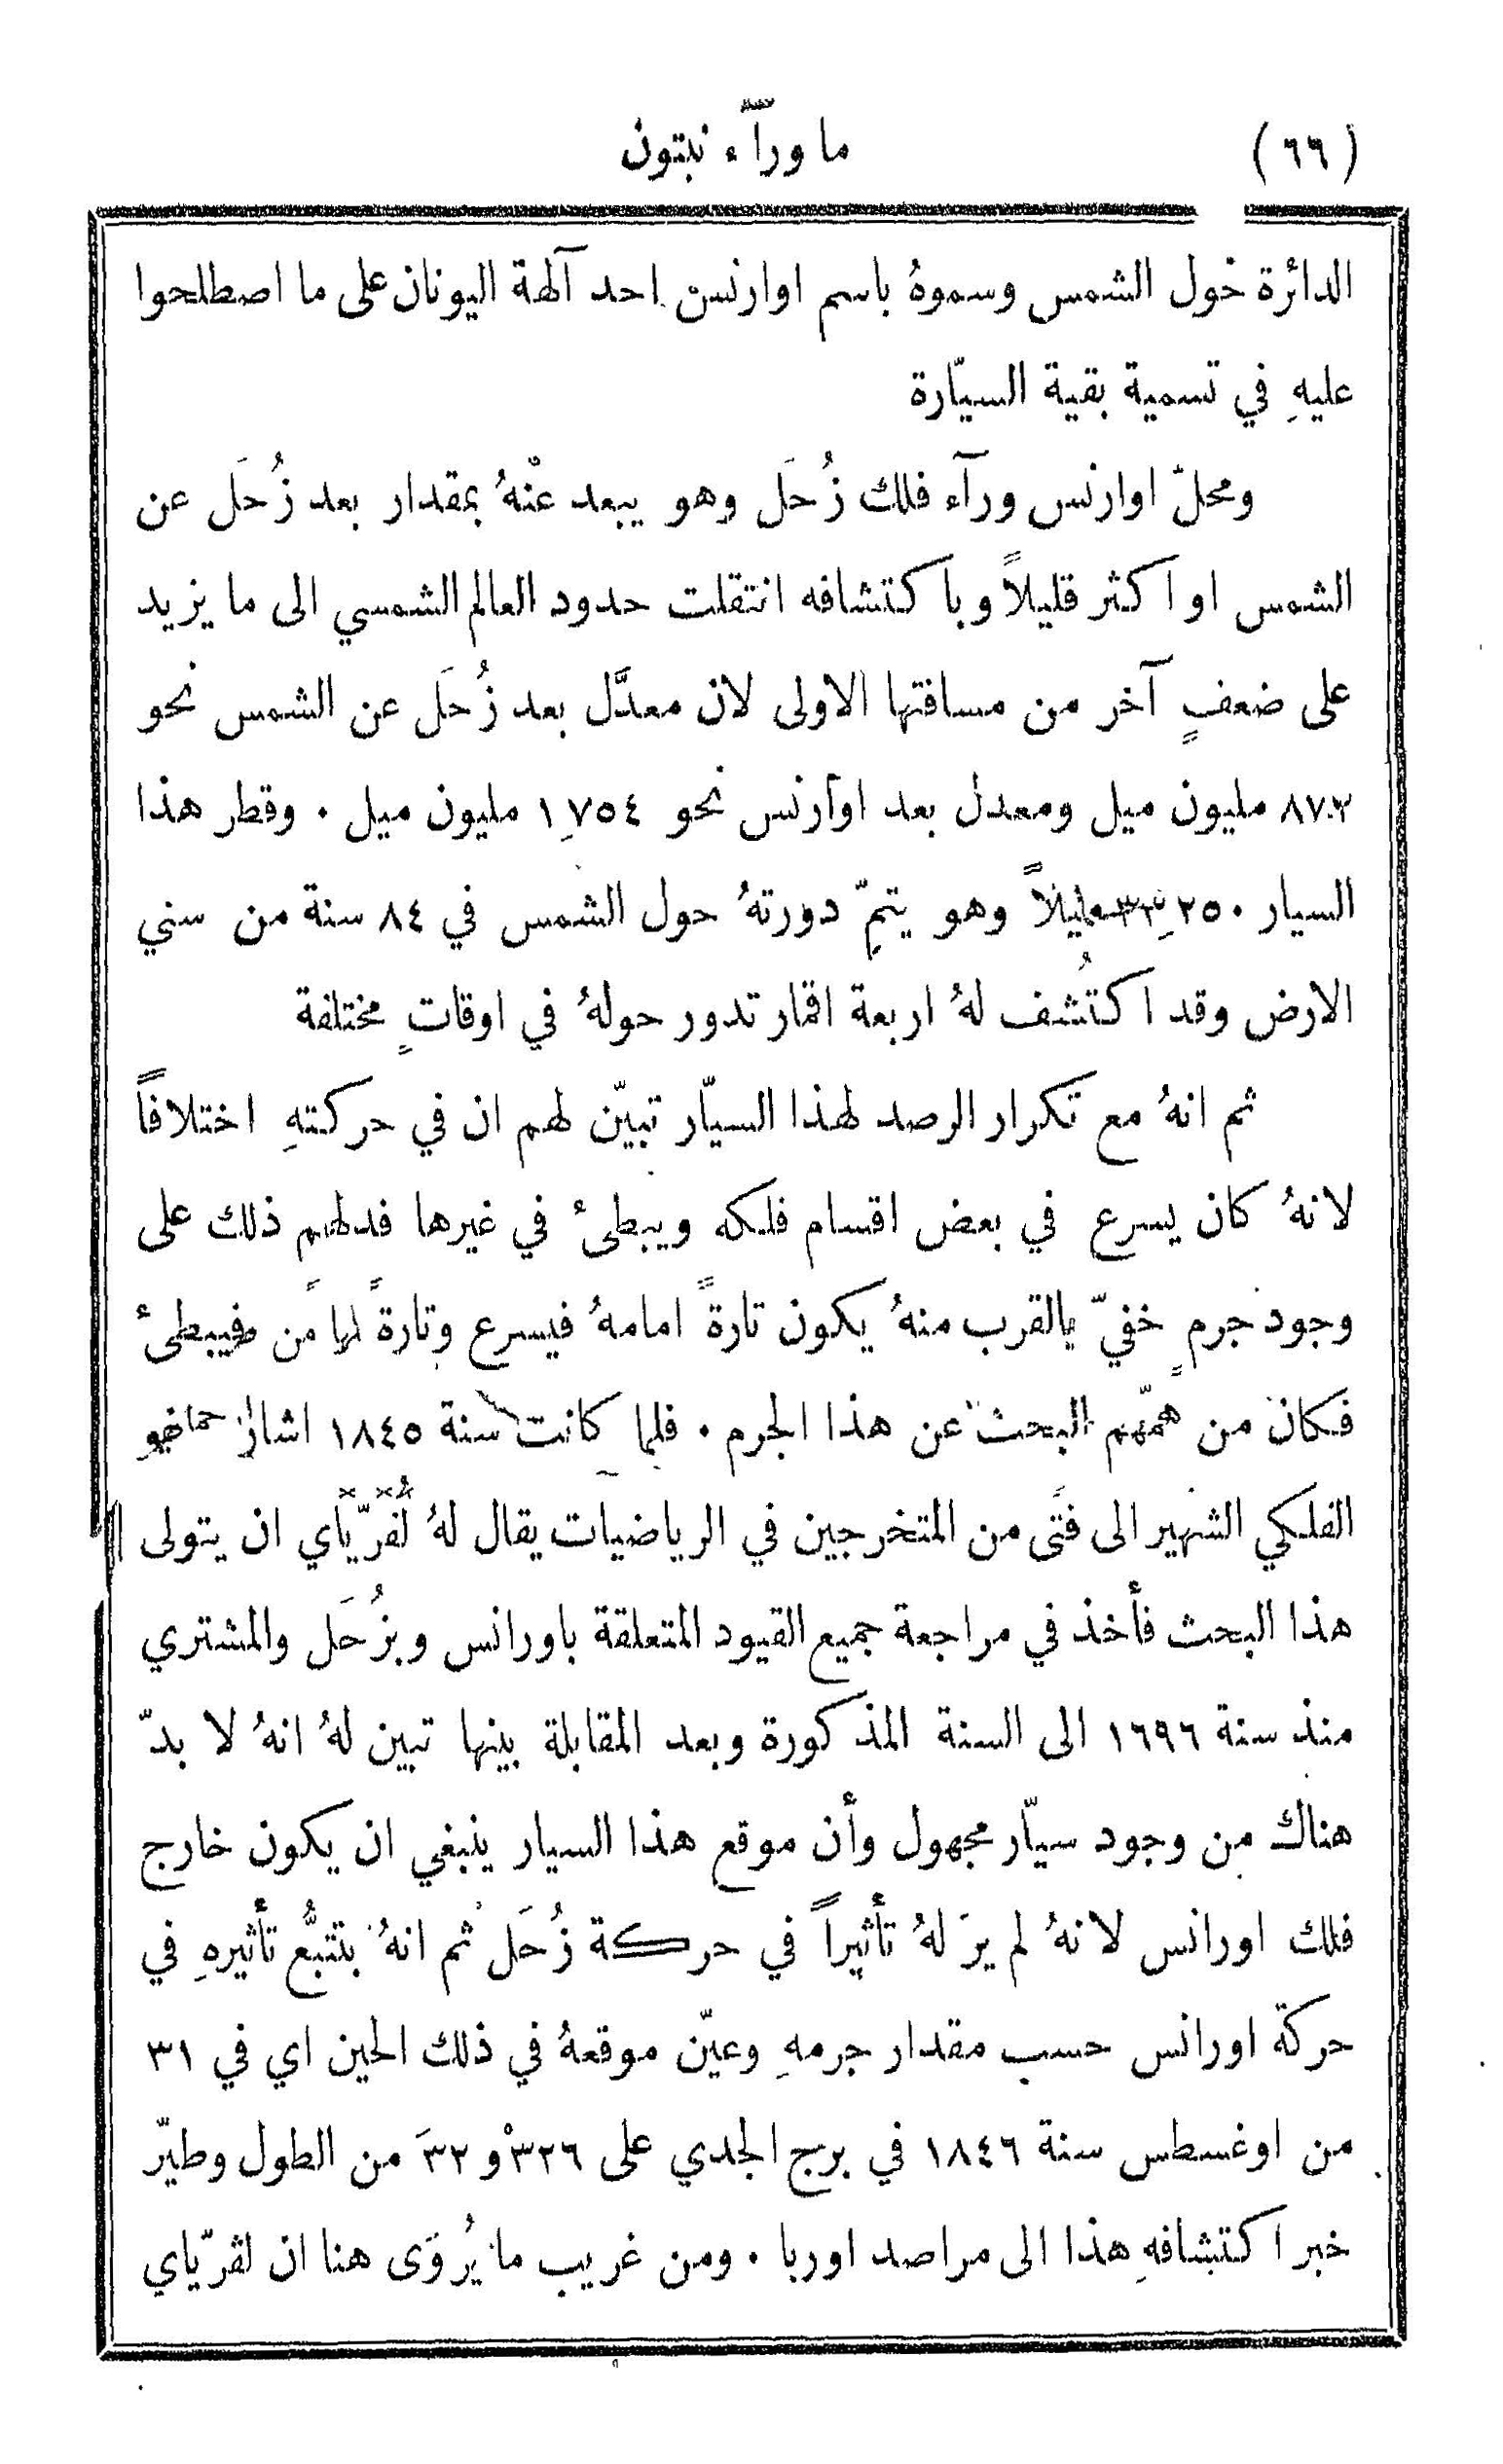 (٦٦) ما ورآء نبتون
الدائرة حول الشمس وسموهُ باسم اوارنس احد آلهة اليونان على ما اصطلحوا
عليهِ في تسمية بقية السيّارة
ومحلّ اوارنس ورآء فلك زُحَل وهو يبعد عنهُ بمقدار بعد زُحَل عن
الشمس او اكثر قليلاً وباكتشافه انتقلت حدود العالم الشمسي الى ما يزيد
على ضعفٍ آخر من مسافتها الاولى لان معدَّل بعد زُحَل عن الشمس نحو
٨٧٣ مليون ميل ومعدل بعد اوارنس نحو ١٫٧٥٤ مليون ميل . وقطر هذا
السيار ٣٣٫٢٥٠ ميلاً وهو يتمّ دورتهُ حول الشمس في ٨٤ سنة من سني
الارض وقد اكتُشف لهُ اربعة اقمار تدور حولهُ في اوقاتٍ مختلفة
ثم انهُ مع تكرار الرصد لهذا السيّار تبيّن لهم ان في حركتهِ اختلافاً
لانهُ كان يسرع في بعض اقسام فلكه ويبطئ في غيرها فدلهم ذلك على
وجود جرمٍ خفيّ بالقرب منهُ يكون تارةً امامهُ فيسرع وتارةً فيبطئ
فكان من همّهم البحث عن هذا الجرم . فلما كانت سنة ١٨٤٥ اشار
الفلكي الشهير الى فتًى من المتخرجين في الرياضيات يقال لهُ لُڤرّياي ان يتولى
هذا البحث فأخذ في مراجعة جميع القيود المتعلقة باورانس وبزُحَل والمشتري
منذ سنة ١٦٩٦ الى السنة المذكورة وبعد المقابلة بينها تبين لهُ انهُ لا بدّ
هناك من وجود سيّار مجهول وأن موقع هذا السيار ينبغي ان يكون خارج
فلك اورانس لانهُ لم يرَ لهُ تأثيراً في حركة زُحَل ثم انهُ بتتبُّع تأثيرهِ في
حركة اورانس حسب مقدار جرمهِ وعيّن موقعهُ في ذلك الحين اي في ٣١
من اوغسطس سنة ١٨٤٦ في برج الجدي على ٣٢٦ْ و ٣٢َ من الطول وطيّر
خبر اكتشافهِ هذا الى مراصد اوربا . ومن غريب ما يُروَى هنا ان لڤرّياي